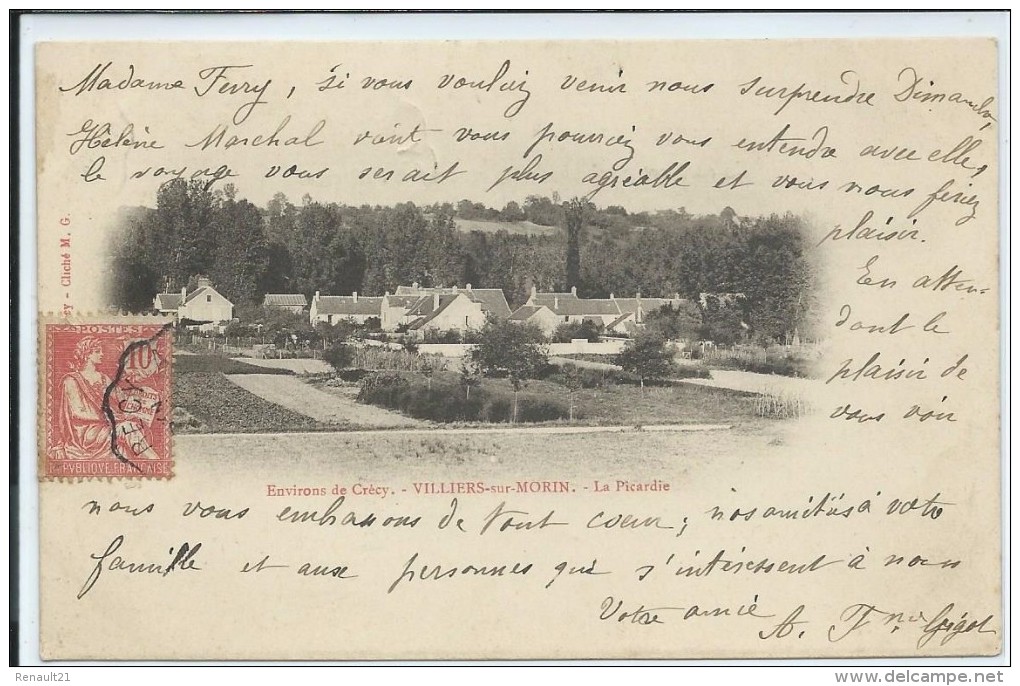 Madame Ferry, si vous vouliez venir nous surprendre Dimanche,
Hélène Marchal vient vous pourriez vous entendre avec elle,
le voyage vous serait plus agréable et vous nous feriez
plaisir.
En atten-
dant le
plaisir de
vous voir
sy - Cliché M. G.
POSTES
10
RÉPUBLIQUE FRANÇAISE
Environs de Crécy. - VILLIERS-sur-MORIN. - La Picardie
nous vous embrassons de tout coeur; nos amitiés à votre
famille et aux personnes qui s'intéressent à nous
Votre amie A.
Renault21
delcampe.net